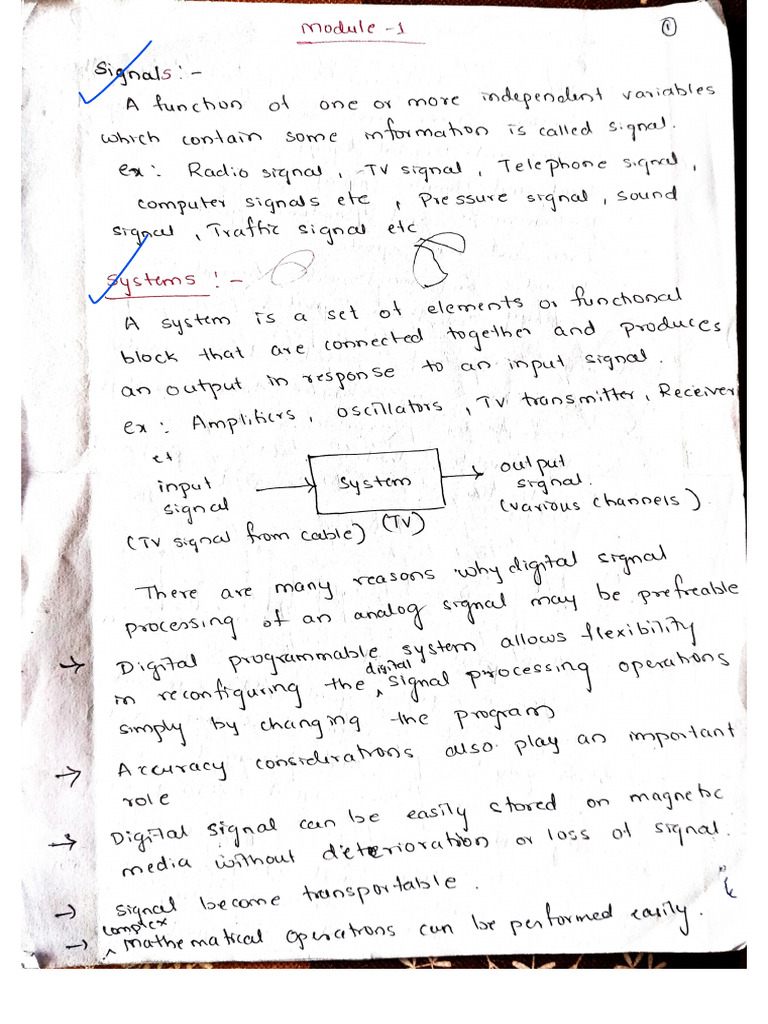 Module -1
1
Signals :-
A function of one or more independent variables
which contain some information is called signal.
ex: Radio signal, TV signal, Telephone signal,
computer signals etc, Pressure signal, sound
signal, Traffic signal etc
Systems :-
A system is a set of elements or functional
block that are connected together and produces
an output in response to an input signal.
ex: Amplifiers, oscillators, TV transmitter, Receiver
et
input signal
System
output signal.
(TV signal from cable)
(TV)
(various channels)
There are many reasons why digital signal
processing of an analog signal may be prefreable
→ Digital programmable system allows flexibility
in reconfiguring the digital signal processing operations
simply by changing the program
→ Accuracy considerations also play an important
role
→ Digital signal can be easily stored on magnetic
media without deterioration or loss of signal.
→ signal become transportable.
→ complex mathematical operations can be performed easily.